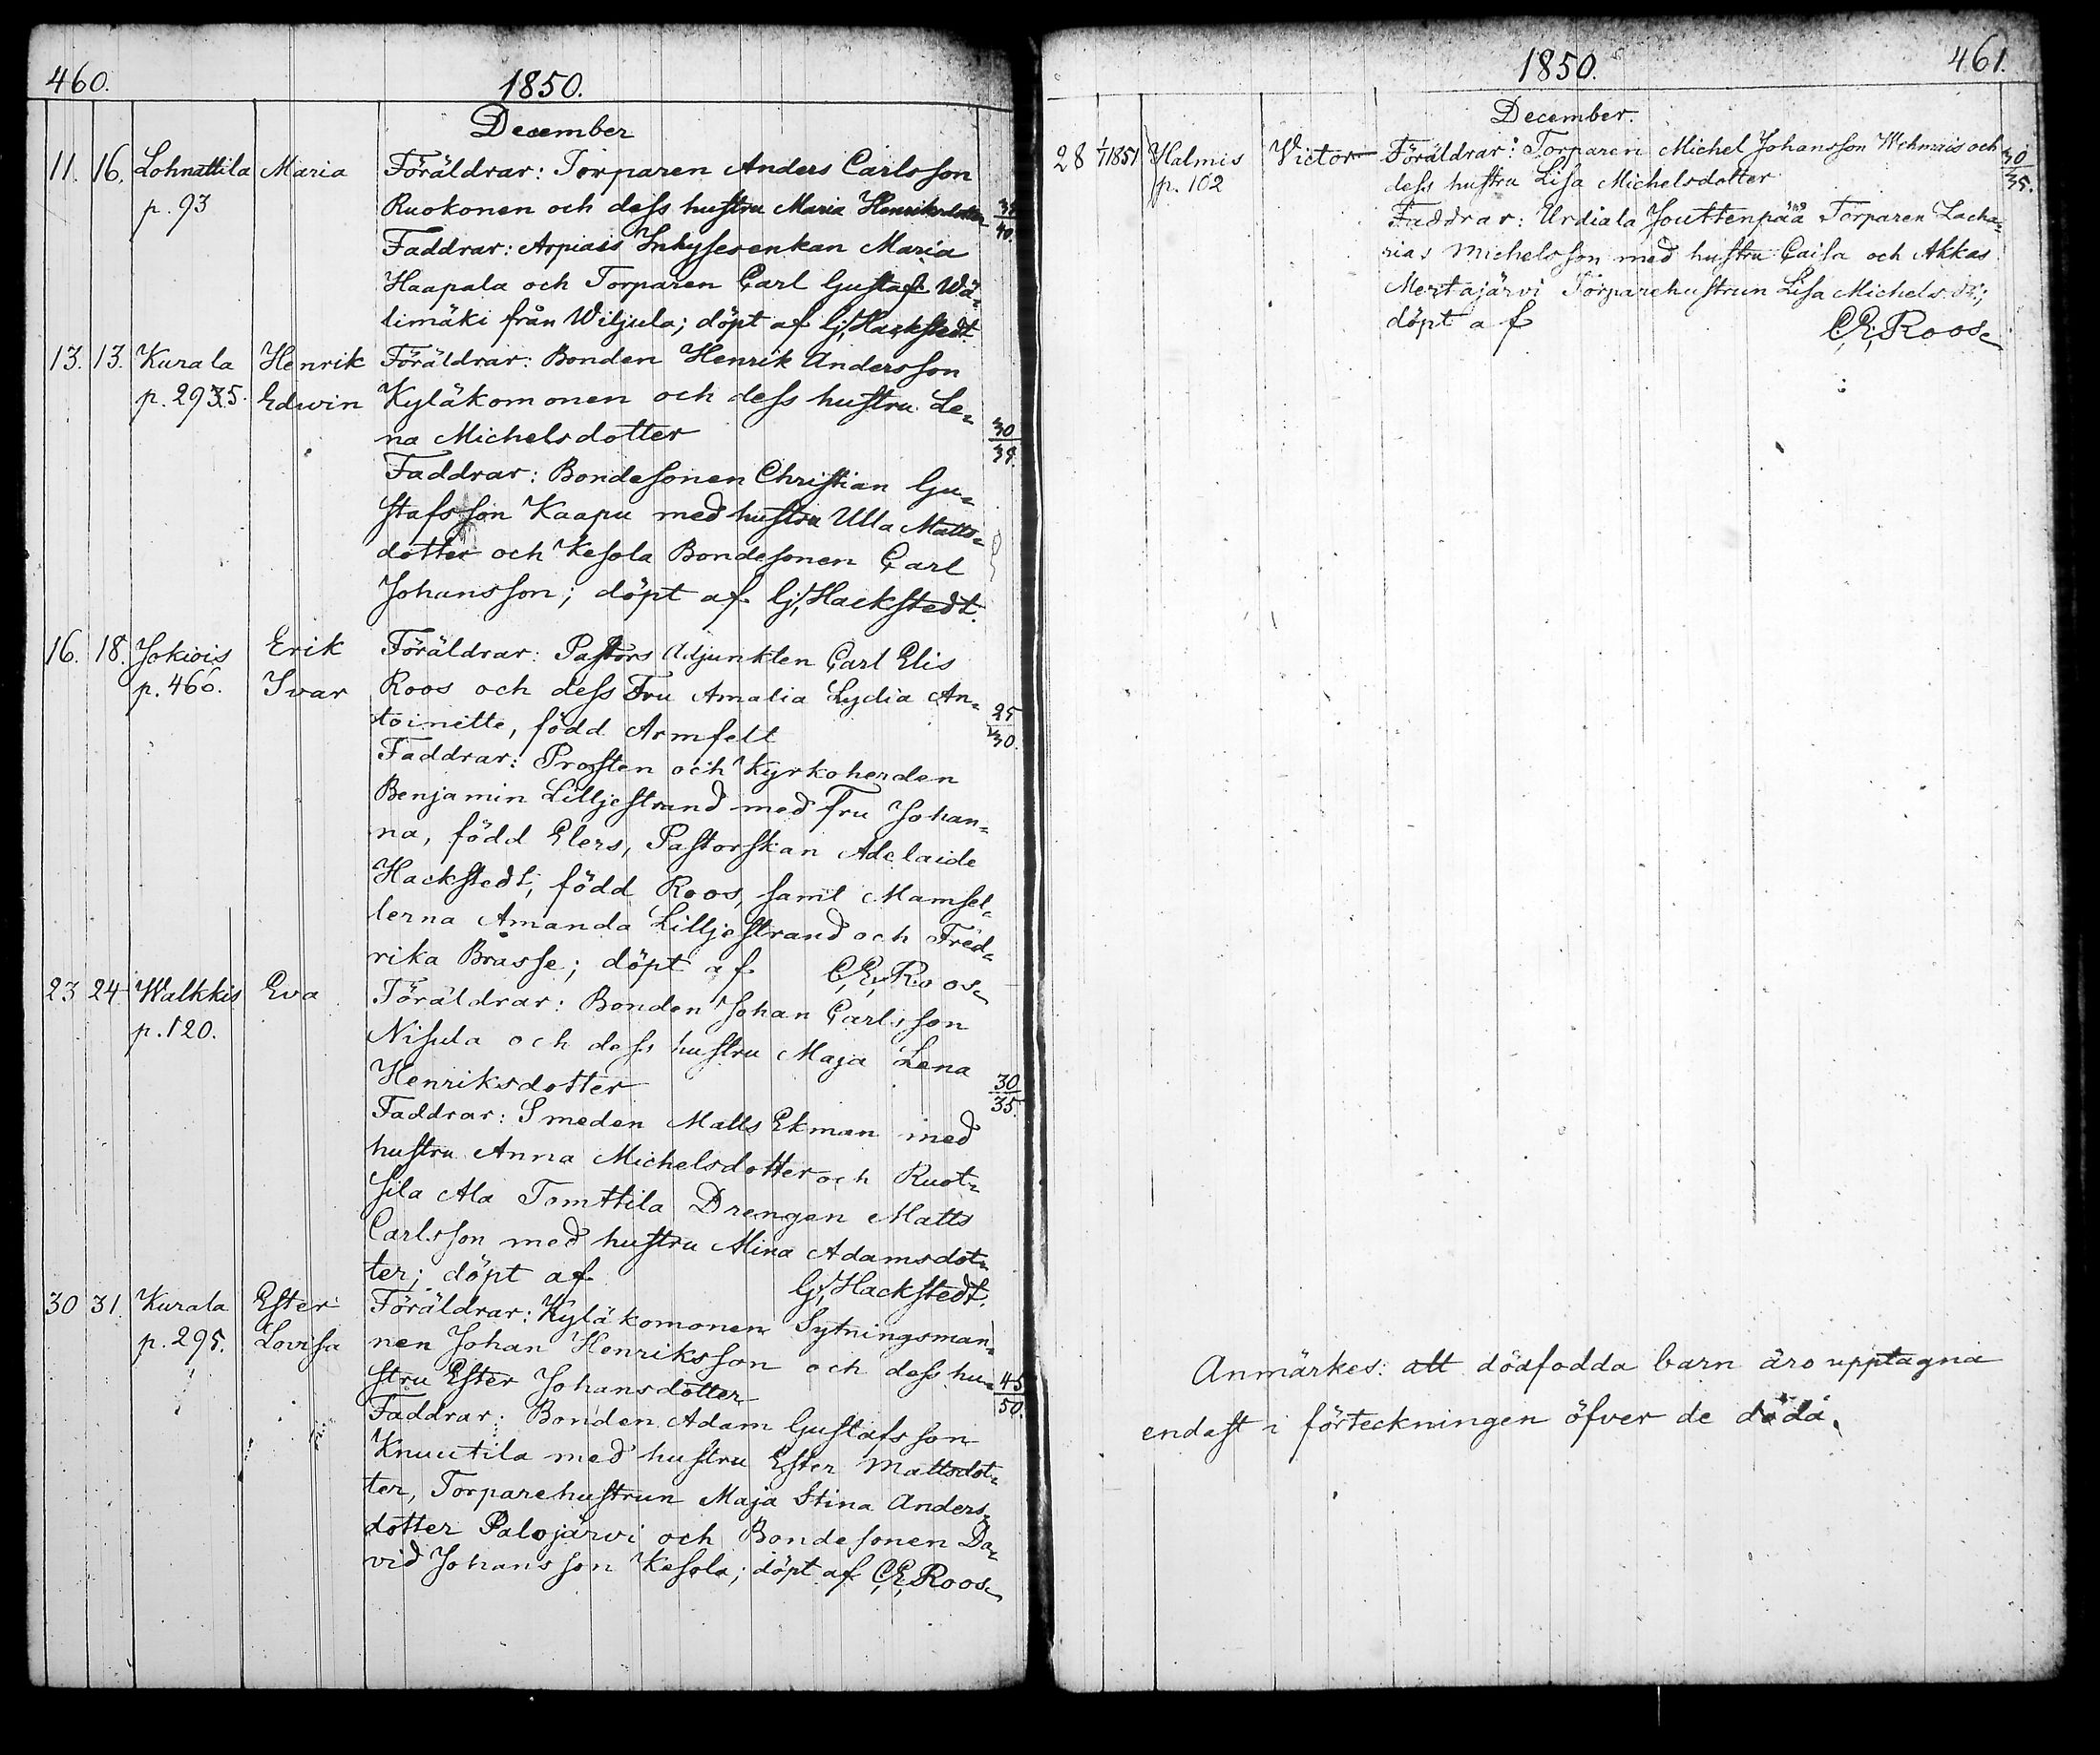 460.
1850.
December
11. 16. Lohnattila Maria Föräldrar: Torparen Anders Carlsson
p. 93 Ruokonen och dess hustru Maria Henriksdotter
40.
Faddrar: Arpiais Inhysesenkan Maria
Haapala och Torparen Carl Gustaf Wä-
limäki från Wiljula; döpt af Gj. Hackstedt.
13. 13. Kurala Henrik Föräldrar: Bonden Henrik Andersson
p. 295. Edwin Kyläkomonen och dess hustru Le-
na Michelsdotter 30
Faddrar: Bondesonen Christian Gu-
stafsson Kaapu med hustru Ulla Matts-
dotter och Kesola Bondesonen Carl
Johansson; döpt af Gj. Hackstedt.
16. 18. Jokiois Erik Föräldrar: Pastors Adjunkten Carl Elis
p. 466. Ivar Roos och dess Fru Amalia Lydia An-
toinette, född Armfelt 25
30.
Faddrar: Prosten och Kyrkoherden
Benjamin Lilljestrand med Fru Johan-
na, född Elers, Pastorskan Adelaide
Hackstedt, född Roos, samt Mamsel-
lerna Amanda Lilljestrand och Fred-
rika Brasse; döpt af C. E. Roos
23 24 Walkkis Eva Föräldrar: Bonden Johan Carlsson
p. 120. Nisula och dess hustru Maja Lena
Henriksdotter 30
35.
Faddrar: Smeden Matts Ekman med
hustru Anna Michelsdotter och Ruot-
sila Ala Tomttila Drengen Matts
Carlsson med hustru Mina Adamsdot-
ter; döpt af Gj. Hackstedt.
30 31. Kurala Ester Föräldrar: Kyläkomonen Sytningsman-
p. 295. Lovisa nen Johan Henriksson och dess hu-
stru Ester Johansdotter 45
50.
Faddrar: Bonden Adam Gustafsson
Knuutila med hustru Ester Mattsdot-
ter, Torparehustrun Maja Stina Anders-
dotter Palojärvi och Bondesonen Da-
vid Johansson Kesola; döpt af C. E. Roos
1850.
461.
December.
28 1/1 1851 Halmis Victor Föräldrar: Torparen Michel Johansson Wehmais och 30
p. 102 dess hustru Lisa Michelsdotter 35.
Faddrar: Urdiala Jouttenpää Torparen Zacha-
rias Michelsson med hustru Caisa och Akkas
Mertajärvi Torparehustrun Lisa Michels dr;
döpt af C. E. Roos
Anmärkes: att dödfödda barn äro upptagna
endast i förteckningen öfver de döda.